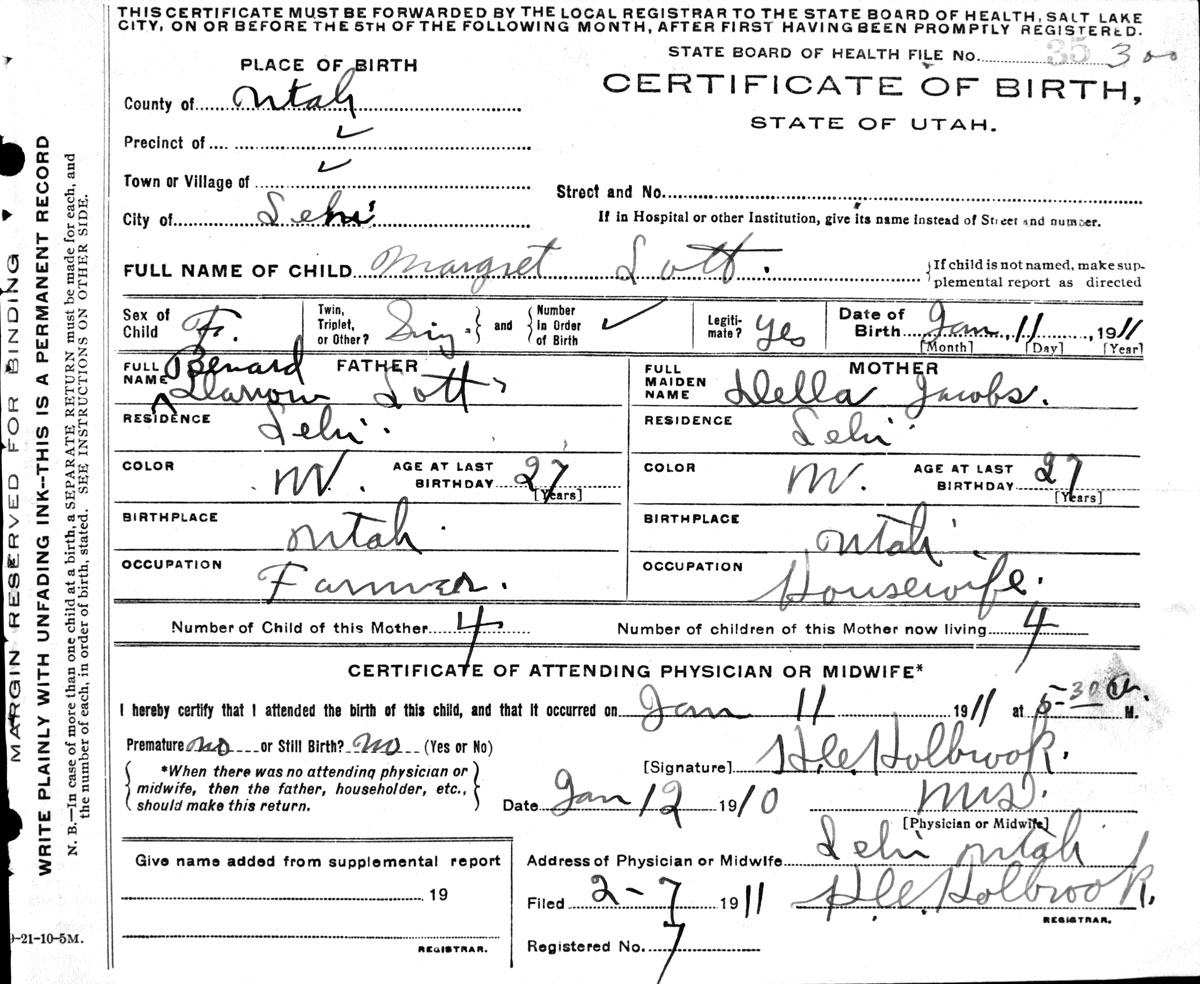 THIS CERTIFICATE MUST BE FORWARDED BY THE LOCAL REGISTRAR TO THE STATE BOARD OF HEALTH, SALT LAKE
CITY, ON OR BEFORE THE 5TH OF THE FOLLOWING MONTH, AFTER FIRST HAVING BEEN PROMPTLY REGISTERED.
STATE BOARD OF HEALTH FILE No. 35 300
PLACE OF BIRTH
CERTIFICATE OF BIRTH,
STATE OF UTAH.
County of Utah
Precinct of ✓
Town or Village of ✓
Street and No.
City of Lehi
If in Hospital or other Institution, give its name instead of Street and number.
FULL NAME OF CHILD Margret Lott.
If child is not named, make sup-
plemental report as directed
Sex of Child F.
Twin, Triplet, or Other? Sing.
and
Number In Order of Birth ✓
Legiti-mate? Yes
Date of Birth Jan 11, 1911
[Month] [Day] [Year]
FATHER
FULL NAME Benard Lott
MOTHER
FULL MAIDEN NAME Della Jacobs.
RESIDENCE Lehi.
RESIDENCE Lehi
COLOR W. AGE AT LAST BIRTHDAY 27 [Years]
COLOR W. AGE AT LAST BIRTHDAY 27 [Years]
BIRTHPLACE Utah
BIRTHPLACE Utah
OCCUPATION Farmer.
OCCUPATION Housewife.
Number of Child of this Mother 4
Number of children of this Mother now living 4
CERTIFICATE OF ATTENDING PHYSICIAN OR MIDWIFE*
I hereby certify that I attended the birth of this child, and that it occurred on Jan 11 1911 at 5-30 a. M.
Premature no or Still Birth? no (Yes or No)
[Signature] Holbrook.
*When there was no attending physician or
midwife, then the father, householder, etc.,
should make this return.
Date Jan 12 1910
[Physician or Midwife]
Address of Physician or Midwife Lehi Utah
Give name added from supplemental report
19
REGISTRAR.
Filed 2-7 1911 Holbrook.
REGISTRAR.
Registered No. 7
9-21-10-5M.
MARGIN RESERVED FOR BINDING
WRITE PLAINLY WITH UNFADING INK--THIS IS A PERMANENT RECORD
N. B.—In case of more than one child at a birth, a SEPARATE RETURN must be made for each, and
the number of each, in order of birth, stated. SEE INSTRUCTIONS ON OTHER SIDE.